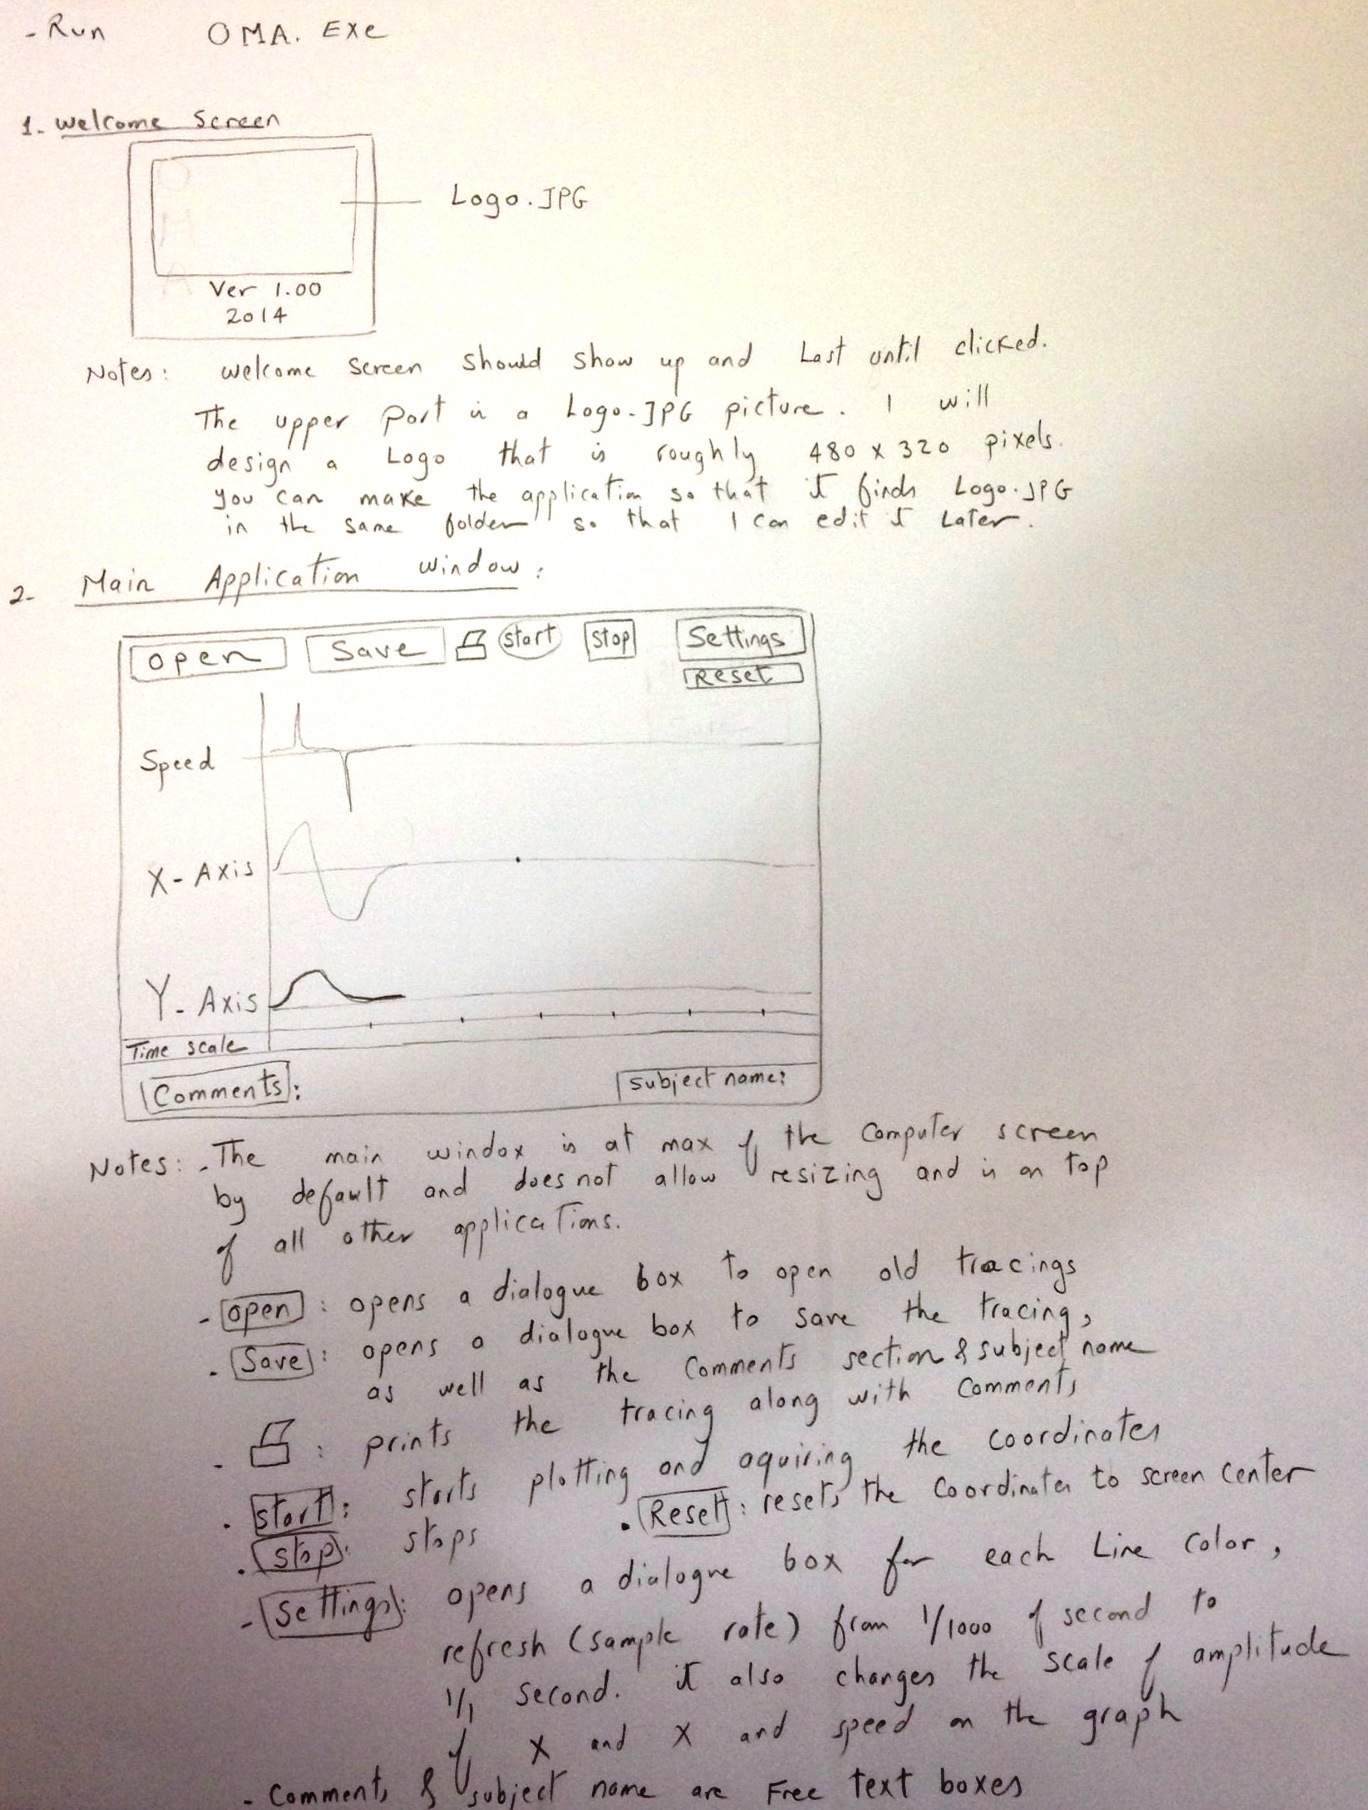 - Run OMA. Exe
1. Welcome Screen
O
M
A
Logo.JPG
Ver 1.00
2014
Notes: Welcome Screen Should Show up and Last until clicked.
The upper Part is a Logo.JPG picture. I will
design a Logo that is roughly 480 x 320 pixels.
you can make the application so that it finds Logo.JPG
in the same folder so that I can edit it Later.
2- Main Application Window:
Open Save Start Stop Settings
Reset
Speed
X- Axis
Y- Axis
Time scale
Comments: Subject name:
Notes: - The main windox is at max of the Computer screen
by default and does not allow resizing and is on top
of all other applications.
- Open : opens a dialogue box to open old tracings
. Save : opens a dialogue box to save the tracing,
as well as the Comments section & subject name
. : prints the tracing along with Comments
. Start : starts plotting and aquiring the coordinates
. Stop : stops . Reset : resets the Coordinates to screen center
- Settings : opens a dialogue box for each Line Color,
refresh (sample rate) from 1/1000 of second to
1/1 second. it also changes the scale of amplitude
of X and X and speed on the graph
- Comments & subject name are Free text boxes